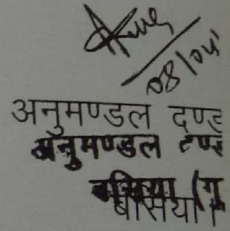 08/04
अनुमण्डल दण्ड
अनुमण्डल दण्ड
बसिया (गु
बसिया